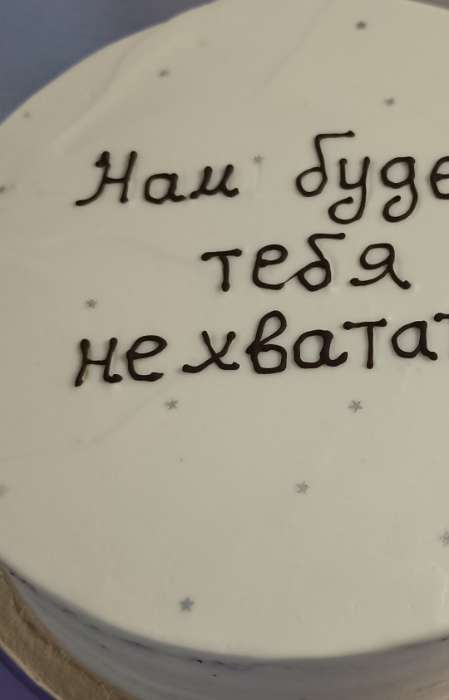 Нам буде
тебя
не хватат